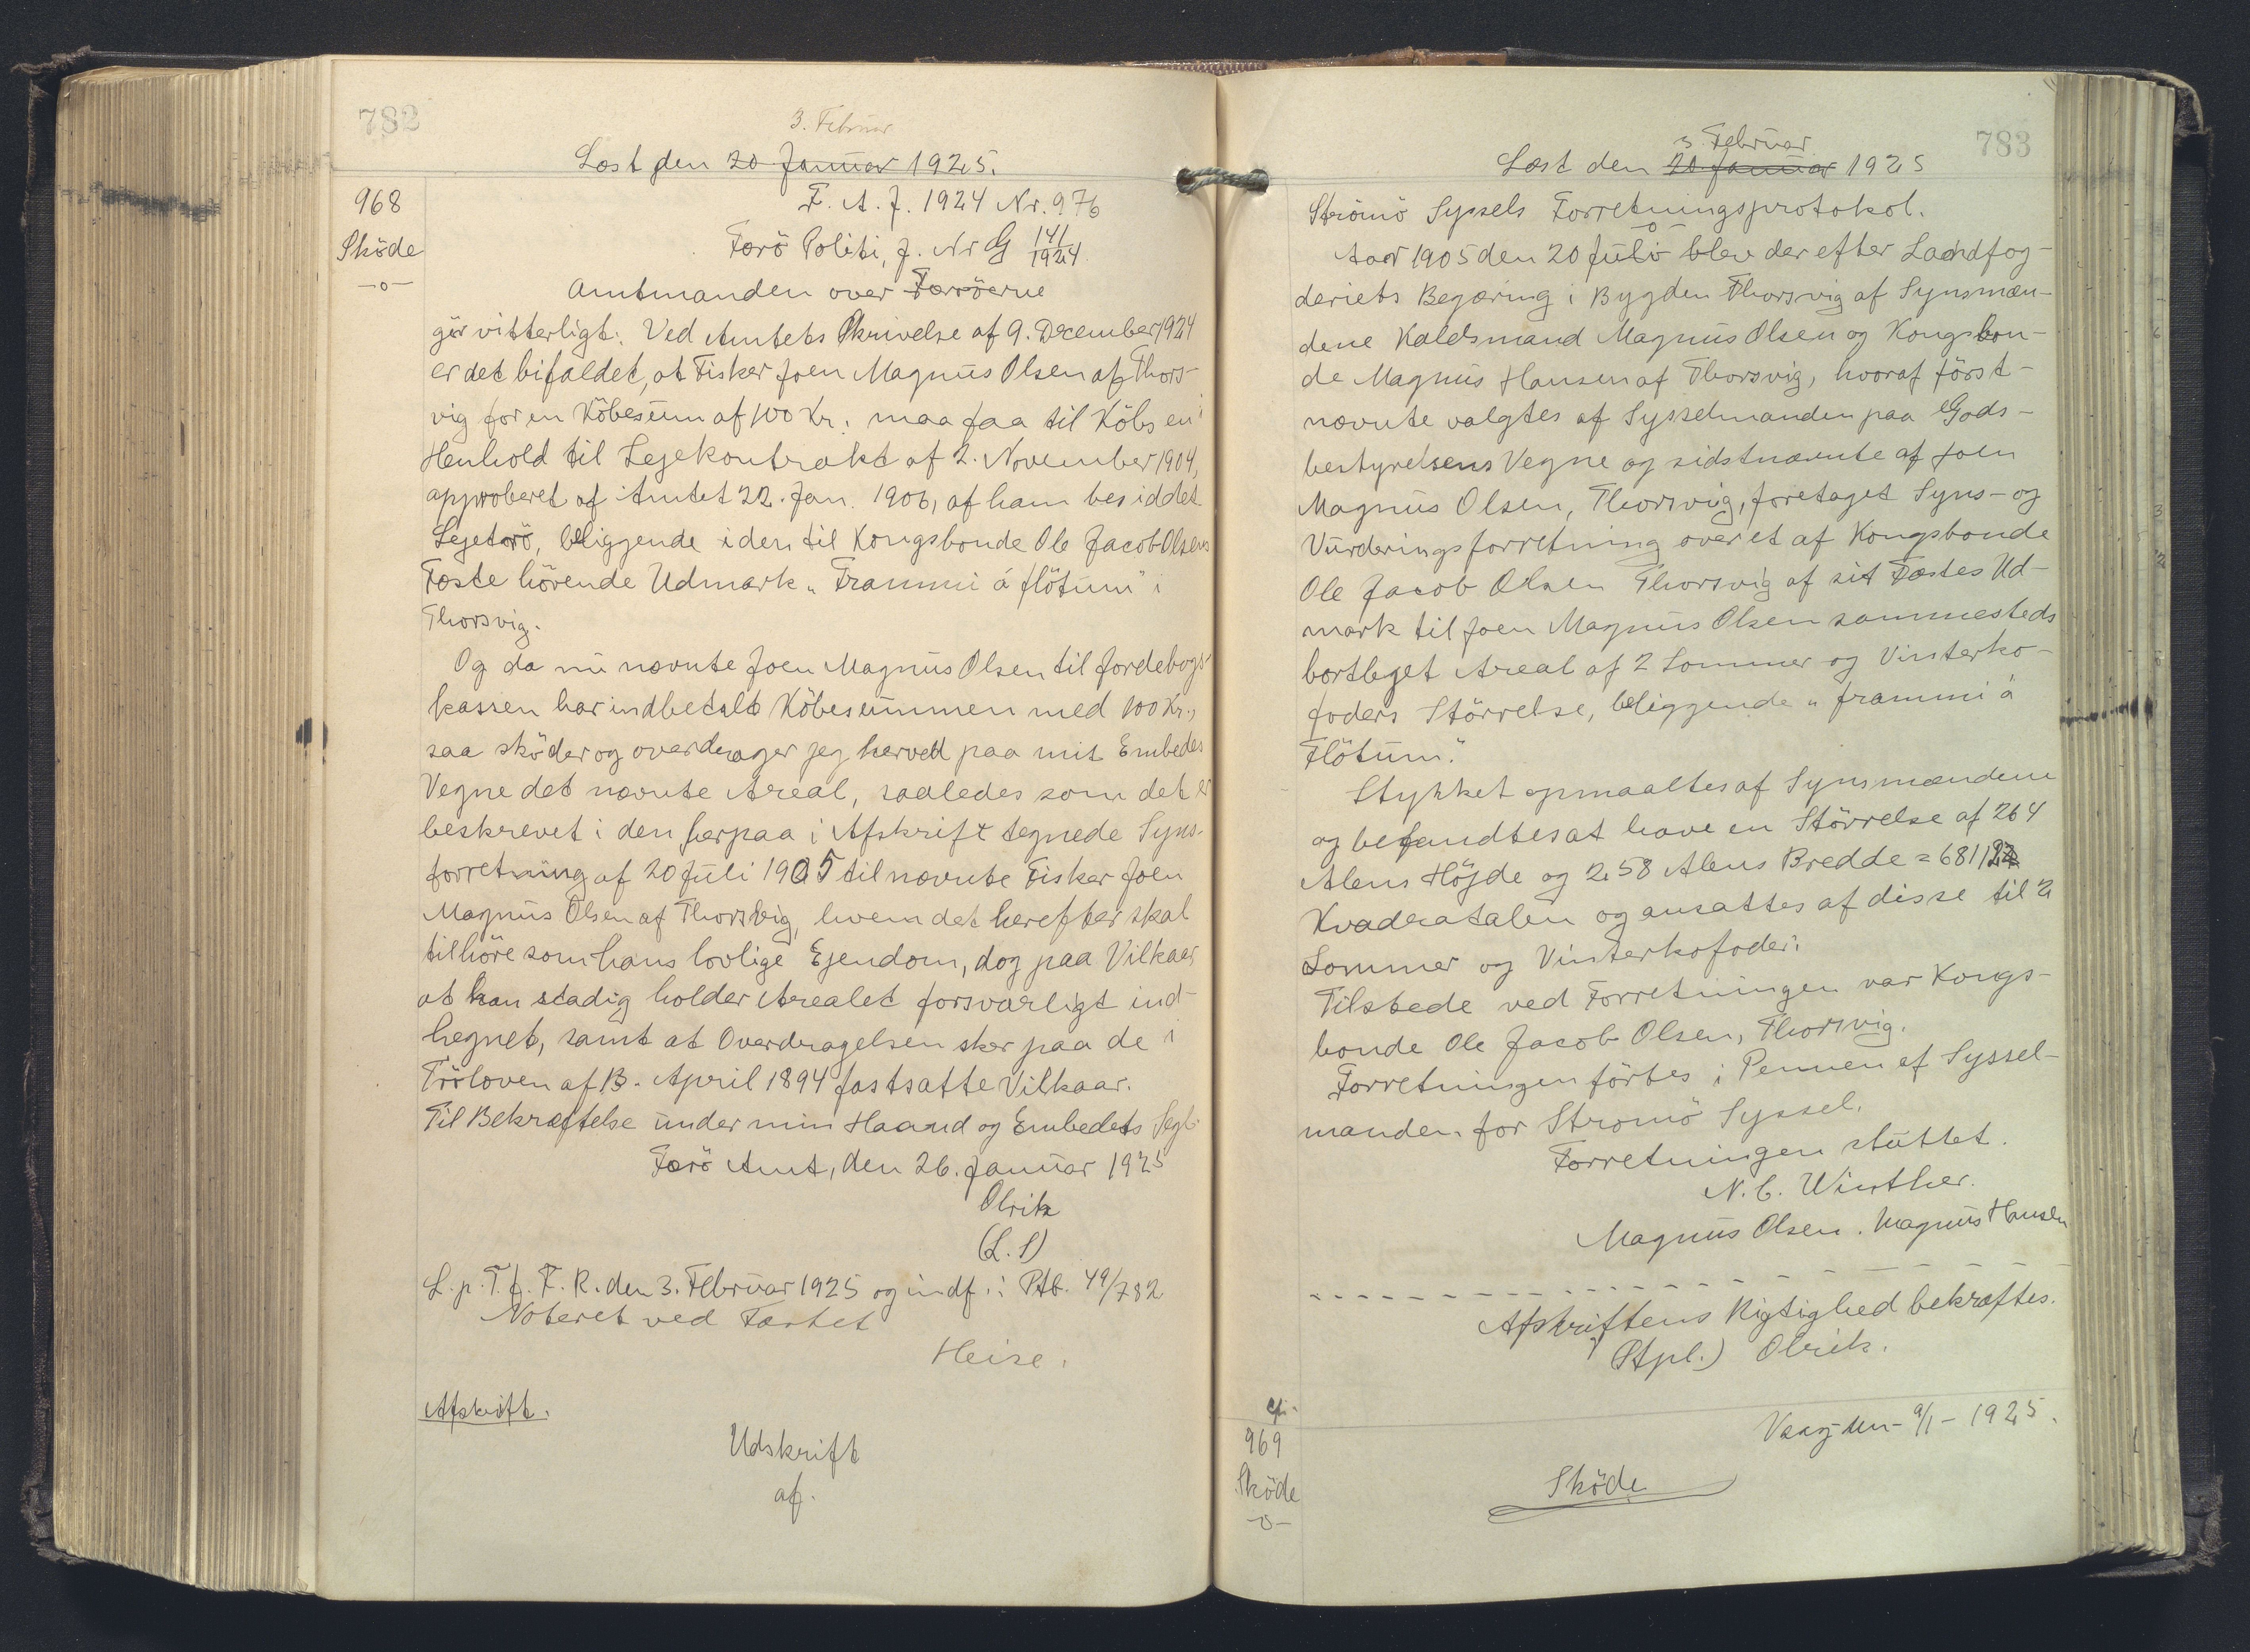 782
3. Februar
Læst den 20 Januar 1925.
968
Sköde
—o—
F. A. J. 1924 Nr. 976
Færö Politi, J. Nr G 141/1924.
Amtmanden over Færöerne
gör vitterligt: Ved Amtets Skrivelse af 9. December 1924
er det bifaldet, at Fisker Joen Magnus Olsen af Thors-
vig for en Köbesum af 100 Kr. maa faa til Köbs en i
Henhold til Lejekontrakt af 2. November 1904,
approberet af Amtet 22. Jan. 1906, af ham besiddet
Lejetrö, beliggende i den til Kongsbonde Ole Jacob Olsens
Fæste hörende Udmark „Frammi á flötum" i
Thorsvig.
Og da nu nævnte Joen Magnus Olsen til Jordebogs-
kassen har indbetalt Köbesummen med 100 Kr.,
saa sköder og overdrager jeg herved paa mit Embedes
Vegne det nævnte Areal, saaledes som det er
beskrevet i den herpaa i Afskrift tegnede Syns-
forretning af 20 Juli 1905 til nævnte Fisker Joen
Magnus Olsen af Thorsvig, hvem det herefter skal
tilhöre som hans lovlige Ejendom, dog paa Vilkaar
at han stadig holder Arealet forsvarligt ind-
hegnet, samt at Overdragelsen sker paa de i
Tröloven af 13. April 1894 fastsatte Vilkaar.
Til Bekræftelse under min Haand og Embedets Segl.
Færö Amt, den 26. Januar 1925
Olrik
(L. S)
L. p. T. f. F. R. den 3. Februar 1925 og indf. i Ptb. 49/782
Noteret ved Fæstet
Heise.
Afskrift.
Udskrift
af.
783
3. Februar
Læst den 20 Januar 1925
Strömö Syssels Forretningsprotokol.
—o—
Aar 1905 den 20 Juli blev der efter Landfog-
deriets Begæring i Bygden Thorsvig af Synsmæn-
dene Kaldsmand Magnus Olsen og Kongsbon-
de Magnus Hansen af Thorsvig, hvoraf först-
nævnte valgtes af Sysselmanden paa Gods-
bestyrelsens Vegne og sidstnævnte af Joen
Magnus Olsen, Thorsvig, foretaget Syns- og
Vurderingsforretning over et af Kongsbonde
Ole Jacob Olsen Thorsvig af sit Fæstes Ud-
mark til Joen Magnus Olsen sammesteds
bortlejet Areal af 2 Sommer og Vinterko-
foders Störrelse, beliggende „frammi á
Flötum."
Stykket opmaaltes af Synsmændene
og befandtes at have en Störrelse af 264
Alens Höjde og 258 Alens Bredde = 68112
Kvadratalen og ansattes af disse til 2
Sommer og Vinterkofoder.
Tilstede ved Forretningen var Kongs-
bonde Ole Jacob Olsen, Thorsvig.
Forretningen förtes i Pennen af Syssel-
manden for Strömö Syssel.
Forretningen sluttet.
N. C. Winther.
Magnus Olsen. Magnus Hansen
Afskriftens Rigtighed bekræftes.
(Stpl.) Olrik.
969
Sköde
—o—
9/1 – 1925.
Sköde